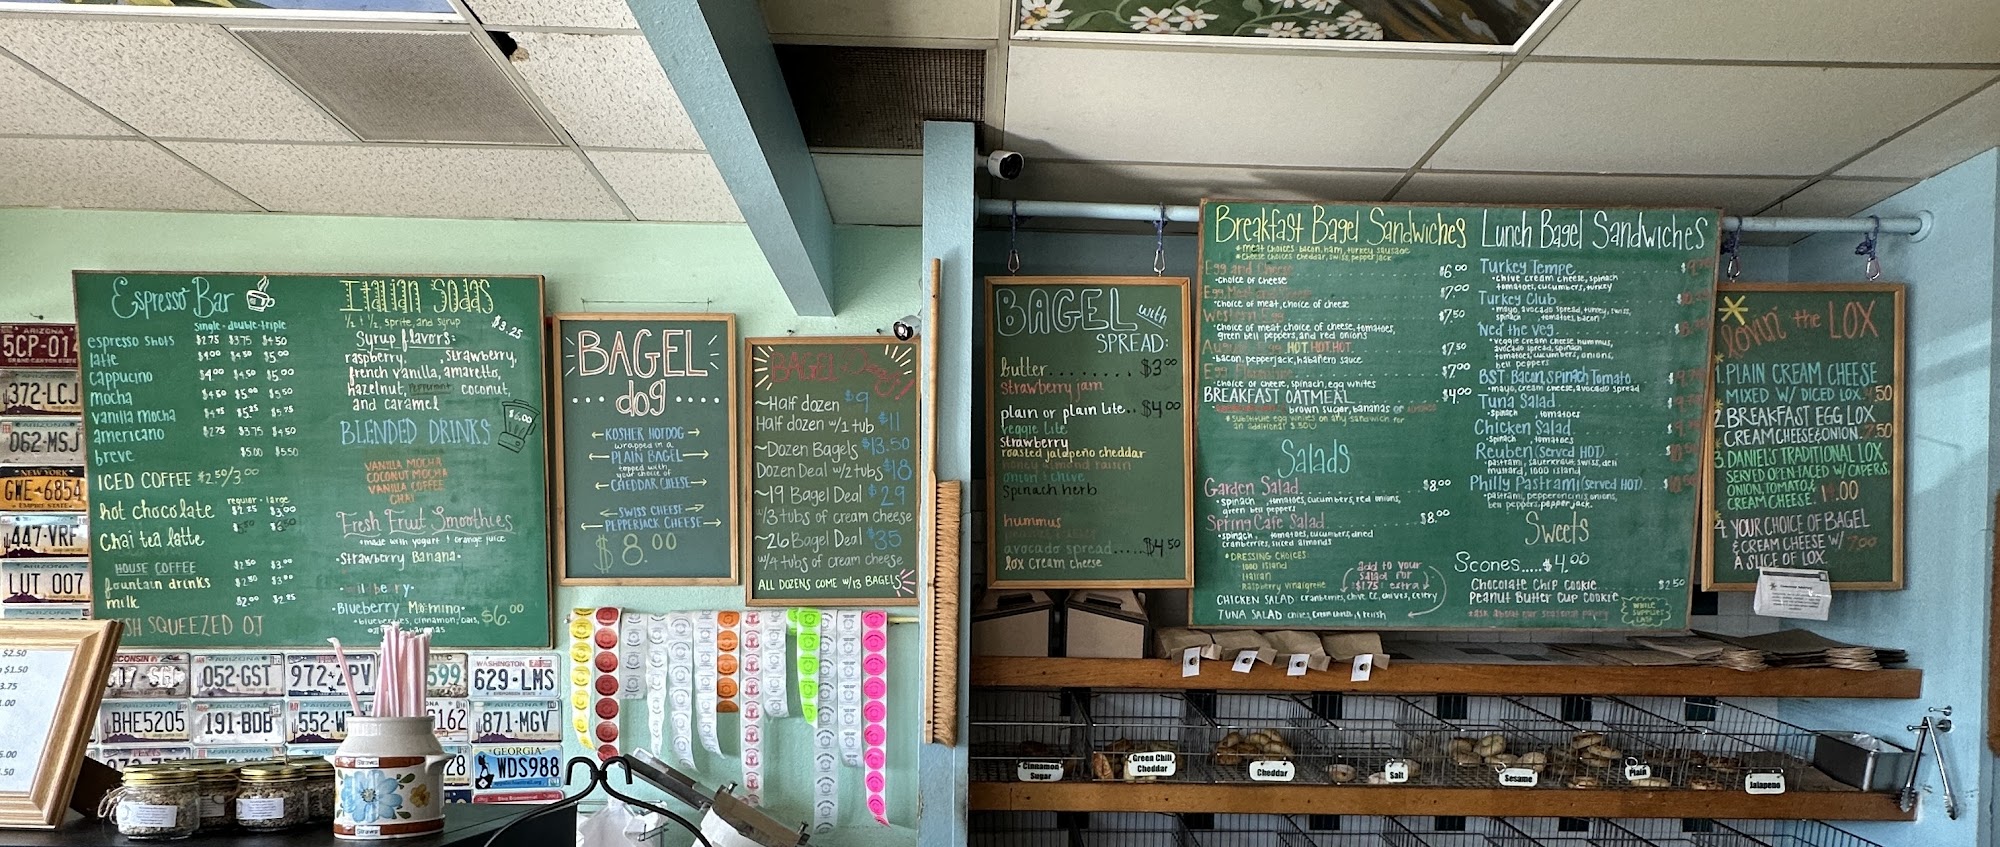 Espresso Bar
single · double · triple
espresso shots $2.75 $3.75 $4.50
latte $4.00 $4.50 $5.00
cappucino $4.00 $4.50 $5.00
mocha $4.50 $5.00 $5.50
vanilla mocha $4.95 $5.25 $5.75
americano $2.75 $3.75 $4.50
breve $5.00 $5.50
ICED COFFEE $2.50/3.00
regular · large
hot chocolate $2.25 $3.00
chai tea latte
HOUSE COFFEE $2.50 $3.00
fountain drinks $2.50 $3.00
milk $2.00 $2.25
SH SQUEEZED OJ
Italian Sodas
½ + ½, sprite, and syrup $3.25
Syrup flavors:
raspberry, strawberry,
french vanilla, amaretto,
hazelnut, peppermint, coconut,
and caramel
BLENDED DRINKS
$6.00
VANILLA MOCHA
COCONUT MOCHA
VANILLA COFFEE
CHAI
Fresh Fruit Smoothies
·made with yogurt + orange juice
·Strawberry Banana·
·Blueberry Morning·
·blueberries, cinnamon, oats, $6.00
BAGEL
dog
KOSHER HOTDOG
wrapped in a
PLAIN BAGEL
topped with
your choice of
CHEDDAR CHEESE
SWISS CHEESE
PEPPERJACK CHEESE
$8.00
BAGEL
~Half dozen $9
Half dozen w/1 tub $11
~Dozen Bagels $13.50
Dozen Deal w/2 tubs $18
~19 Bagel Deal $29
w/3 tubs of cream cheese
~26 Bagel Deal $35
w/4 tubs of cream cheese
ALL DOZENS COME W/13 BAGELS
BAGEL with
SPREAD:
butter........ $3.00
strawberry jam
plain or plain lite.. $4.00
veggie lite
strawberry
roasted jalapeño cheddar
honey almond raisin
onion + chive
spinach herb
hummus
avocado spread..... $4.50
lox cream cheese
Breakfast Bagel Sandwiches
*meat choices: bacon, ham, turkey sausage
*cheese choices: cheddar, swiss, pepper jack
Egg and Cheese $6.00
·choice of cheese
Egg Meat $7.00
·choice of meat, choice of cheese
Western Egg $7.50
·choice of meat, choice of cheese, tomatoes,
green bell peppers, and red onions
HOT.HOT.HOT. $7.50
·bacon, pepperjack, habañero sauce
Egg Florentine $7.00
·choice of cheese, spinach, egg whites
BREAKFAST OATMEAL $4.00
brown sugar, bananas or
*substitute egg whites on any sandwich for
an additional $.50
Salads
Garden Salad $8.00
·spinach, tomatoes, cucumbers, red onions,
green bell peppers
Spring Cafe Salad $8.00
·spinach, tomatoes, cucumbers, dried
cranberries, sliced almonds
·DRESSING CHOICES·
1000 Island
Italian
Raspberry vinaigrette
add to your
salad for
$1.75 extra
CHICKEN SALAD: cranberries, chive CC, chives, celery
TUNA SALAD: chives, cream cheese, relish
Lunch Bagel Sandwiches
Turkey Tempe
·chive cream cheese, spinach
tomatoes, cucumbers, turkey
Turkey Club
·mayo, avocado spread, turkey, swiss,
spinach, tomatoes, bacon
Ned the Veg
·veggie cream cheese, hummus,
avocado spread, spinach
tomatoes, cucumbers, onions,
bell peppers
BST Bacon, Spinach Tomato
·mayo, cream cheese, avocado spread
Tuna Salad
·spinach, tomatoes
Chicken Salad
·spinach, tomatoes
Reuben (served HOT)
·pastrami, sauerkraut, swiss, deli
mustard, 1000 island
Philly Pastrami (served HOT)
·pastrami, pepperoncinis, onions,
bell peppers, pepper jack
Sweets
Scones.....$4.00
Chocolate Chip Cookie $2.50
Peanut Butter Cup Cookie
WHILE
SUPPLIES
LAST
*ask about our seasonal
lovin' the LOX
1. PLAIN CREAM CHEESE
MIXED W/ DICED LOX
2. BREAKFAST EGG LOX
CREAM CHEESE & ONION. 7.50
3. DANIEL'S TRADITIONAL LOX
SERVED OPEN-FACED W/ CAPERS,
ONION, TOMATO &
CREAM CHEESE.
4. YOUR CHOICE OF BAGEL
& CREAM CHEESE W/ 7.00
A SLICE OF LOX.
Cinnamon
Sugar
Green Chili
Cheddar
Cheddar
Salt
Sesame
Plain
Jalapeno
ARIZONA
5CP·01
372·LCJ
062·MSJ
NEW YORK
GWE·6854
EMPIRE STATE
447·VRF
LUT 007
ARIZONA
052·GST
972·ZPV
599
WASHINGTON
629·LMS
BHE5205
191·BDB
552·W
162
871·MGV
GEORGIA
WDS988
Straws
$2.50
$1.50